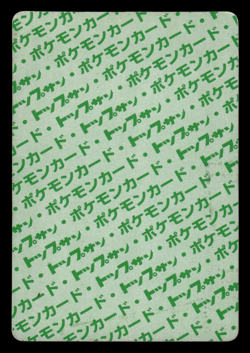 ポケモンカード・
トップサン・ポケモンカード
カード・トップサン・ポケモンカード
ポケモンカード・トップサン・ポケモン
・ポケモンカード・トップサン・ポケ
トップサン・ポケモンカード・トップサン・
カード・トップサン・ポケモンカード・トップサン
モンカード・トップサン・ポケモンカード・
ポケモンカード・トップサン・ポケモンカード
トップサン・ポケモンカード・トップサン・ポケモン
カード・トップサン・ポケモンカード・トップサン
ポケモンカード・トップサン・
トップサン・ポケモンカード